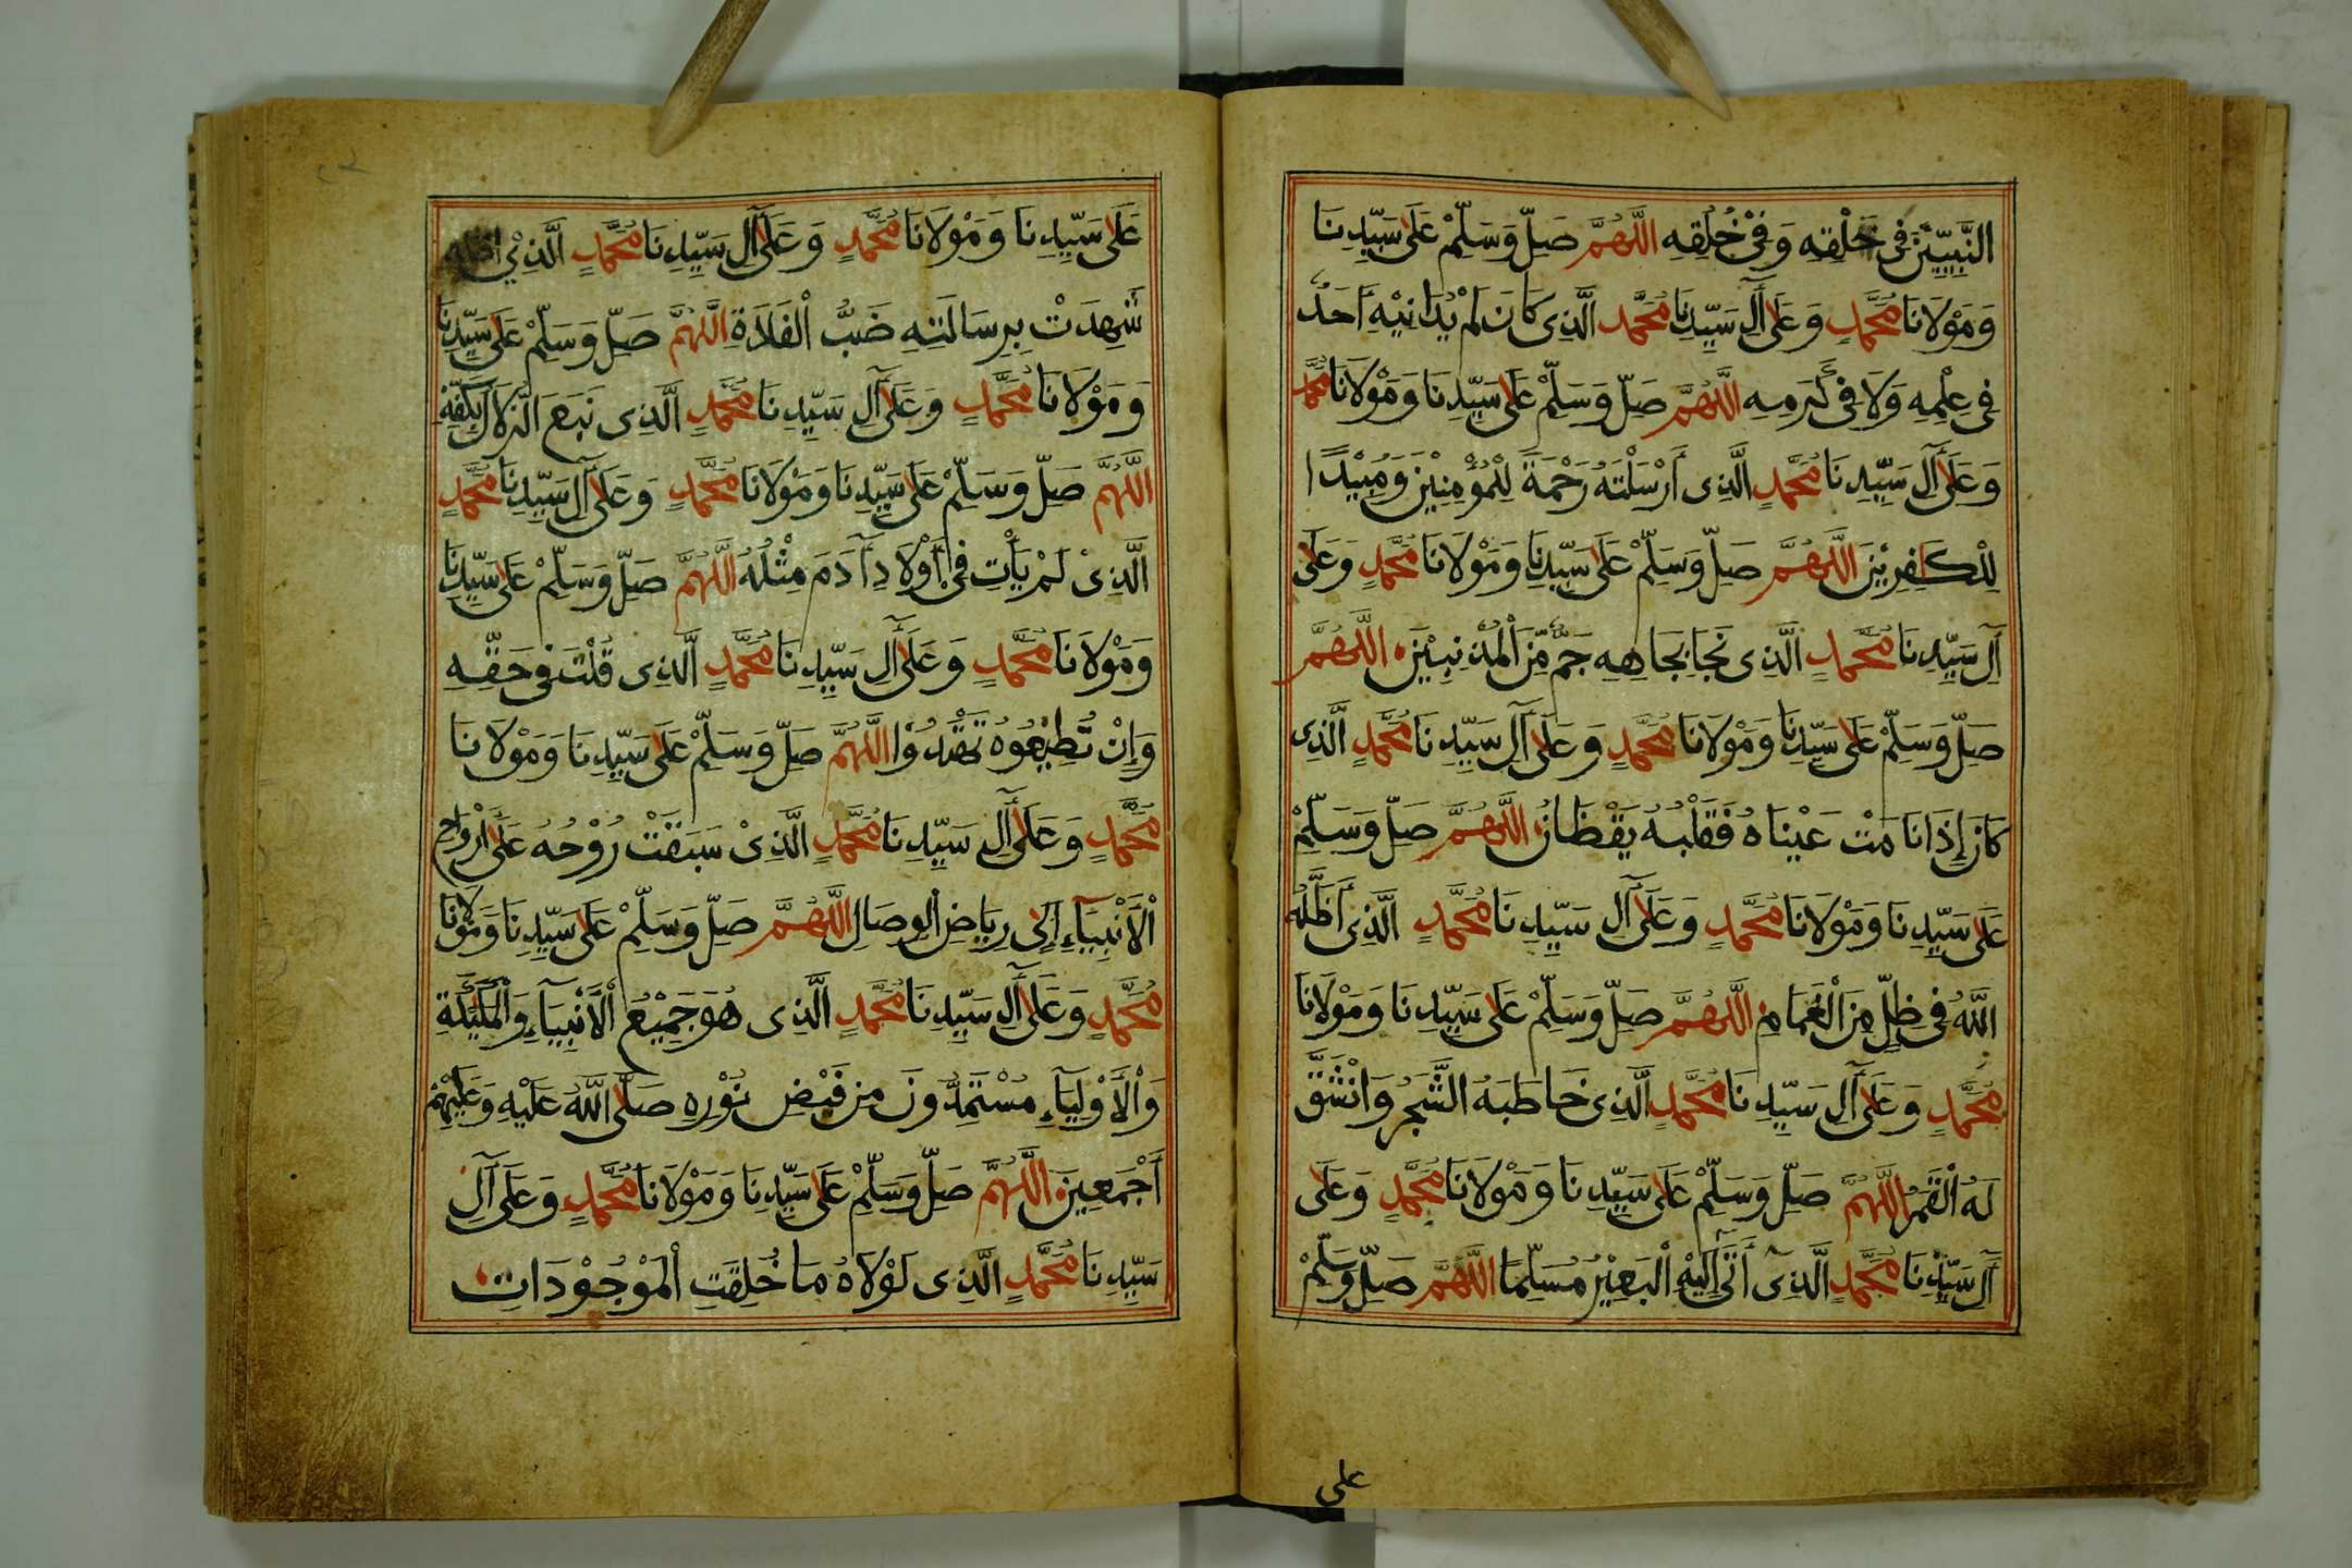 النَّبِيِّيْنَ فِى خَلْقِهِ وَفِىْ خُلُقِهِ اللّٰهُمَّ صَلِّ وَسَلِّمْ عَلَى سَيِّدِنَا
وَمَوْلَانَا مُحَمَّدٍ وَعَلَى آلِ سَيِّدِنَا مُحَمَّدٍ الَّذِى كَانَ لَمْ يُدَانِيْهِ أَحَدٌ
فِى عِلْمِهِ وَلَا فِى كَرَمِهِ اللّٰهُمَّ صَلِّ وَسَلِّمْ عَلَى سَيِّدِنَا وَمَوْلَانَا مُحَمَّدٍ
وَعَلَى آلِ سَيِّدِنَا مُحَمَّدٍ الَّذِى أَرْسَلْتَهُ رَحْمَةً لِلْمُؤْمِنِيْنَ وَمُبِيْدًا
لِلْكَافِرِيْنَ اللّٰهُمَّ صَلِّ وَسَلِّمْ عَلَى سَيِّدِنَا وَمَوْلَانَا مُحَمَّدٍ وَعَلَى
آلِ سَيِّدِنَا مُحَمَّدٍ الَّذِى نَجَا بِجَاهِهِ جَمٌّ مِّنَ الْمُذْنِبِيْنَ اللّٰهُمَّ
صَلِّ وَسَلِّمْ عَلَى سَيِّدِنَا وَمَوْلَانَا مُحَمَّدٍ وَعَلَى آلِ سَيِّدِنَا مُحَمَّدٍ الَّذِى
كَانَ إِذَا نَامَتْ عَيْنَاهُ فَقَلْبُهُ يَقْظَانُ اللّٰهُمَّ صَلِّ وَسَلِّمْ
عَلَى سَيِّدِنَا وَمَوْلَانَا مُحَمَّدٍ وَعَلَى آلِ سَيِّدِنَا مُحَمَّدٍ الَّذِى أَظَلَّهُ
اللّٰهُ فِى ظِلٍّ مِنَ الْغَمَامِ اللّٰهُمَّ صَلِّ وَسَلِّمْ عَلَى سَيِّدِنَا وَمَوْلَانَا
مُحَمَّدٍ وَعَلَى آلِ سَيِّدِنَا مُحَمَّدٍ الَّذِى خَاطَبَهُ الشَّجَرُ وَانْشَقَّ
لَهُ الْقَمَرُ اللّٰهُمَّ صَلِّ وَسَلِّمْ عَلَى سَيِّدِنَا وَمَوْلَانَا مُحَمَّدٍ وَعَلَى
آلِ سَيِّدِنَا مُحَمَّدٍ الَّذِى أَتَى إِلَيْهِ الْبَعِيْرُ مُسَلِّمًا اللّٰهُمَّ صَلِّ وَسَلِّمْ
على
عَلَى سَيِّدِنَا وَمَوْلَانَا مُحَمَّدٍ وَعَلَى آلِ سَيِّدِنَا مُحَمَّدٍ الَّذِىْ
شَهِدَتْ بِرِسَالَتِهِ ضَبُّ الْفَلَاةِ اللّٰهُمَّ صَلِّ وَسَلِّمْ عَلَى سَيِّدِنَا
وَمَوْلَانَا مُحَمَّدٍ وَعَلَى آلِ سَيِّدِنَا مُحَمَّدٍ الَّذِى نَبَعَ الزُّلَالُ بِكَفِّهِ
اللّٰهُمَّ صَلِّ وَسَلِّمْ عَلَى سَيِّدِنَا وَمَوْلَانَا مُحَمَّدٍ وَعَلَى آلِ سَيِّدِنَا مُحَمَّدٍ
الَّذِىْ لَمْ يَأْتِ فِى أَوْلَادِ آدَمَ مِثْلُهُ اللّٰهُمَّ صَلِّ وَسَلِّمْ عَلَى سَيِّدِنَا
وَمَوْلَانَا مُحَمَّدٍ وَعَلَى آلِ سَيِّدِنَا مُحَمَّدٍ الَّذِى قُلْتَ فِى حَقِّهِ
وَإِنْ تُطِيْعُوْهُ تَهْتَدُوْا اللّٰهُمَّ صَلِّ وَسَلِّمْ عَلَى سَيِّدِنَا وَمَوْلَانَا
مُحَمَّدٍ وَعَلَى آلِ سَيِّدِنَا مُحَمَّدٍ الَّذِىْ سَبَقَتْ رُوْحُهُ عَلَى أَرْوَاحِ
الْأَنْبِيَآءِ إِلَى رِيَاضِ الْوِصَالِ اللّٰهُمَّ صَلِّ وَسَلِّمْ عَلَى سَيِّدِنَا وَمَوْلَانَا
مُحَمَّدٍ وَعَلَى آلِ سَيِّدِنَا مُحَمَّدٍ الَّذِى هُوَ جَمِيْعُ الْأَنْبِيَآءِ وَالْمَلَئِكَةِ
وَالْأَوْلِيَآءِ مُسْتَمِدُّوْنَ مِنْ فَيْضِ نُوْرِهِ صَلَّى اللّٰهُ عَلَيْهِ وَعَلَيْهِمْ
أَجْمَعِيْنَ اللّٰهُمَّ صَلِّ وَسَلِّمْ عَلَى سَيِّدِنَا وَمَوْلَانَا مُحَمَّدٍ وَعَلَى آلِ
سَيِّدِنَا مُحَمَّدٍ الَّذِى لَوْلَاهُ مَا خُلِقَتِ الْمَوْجُوْدَاتِ